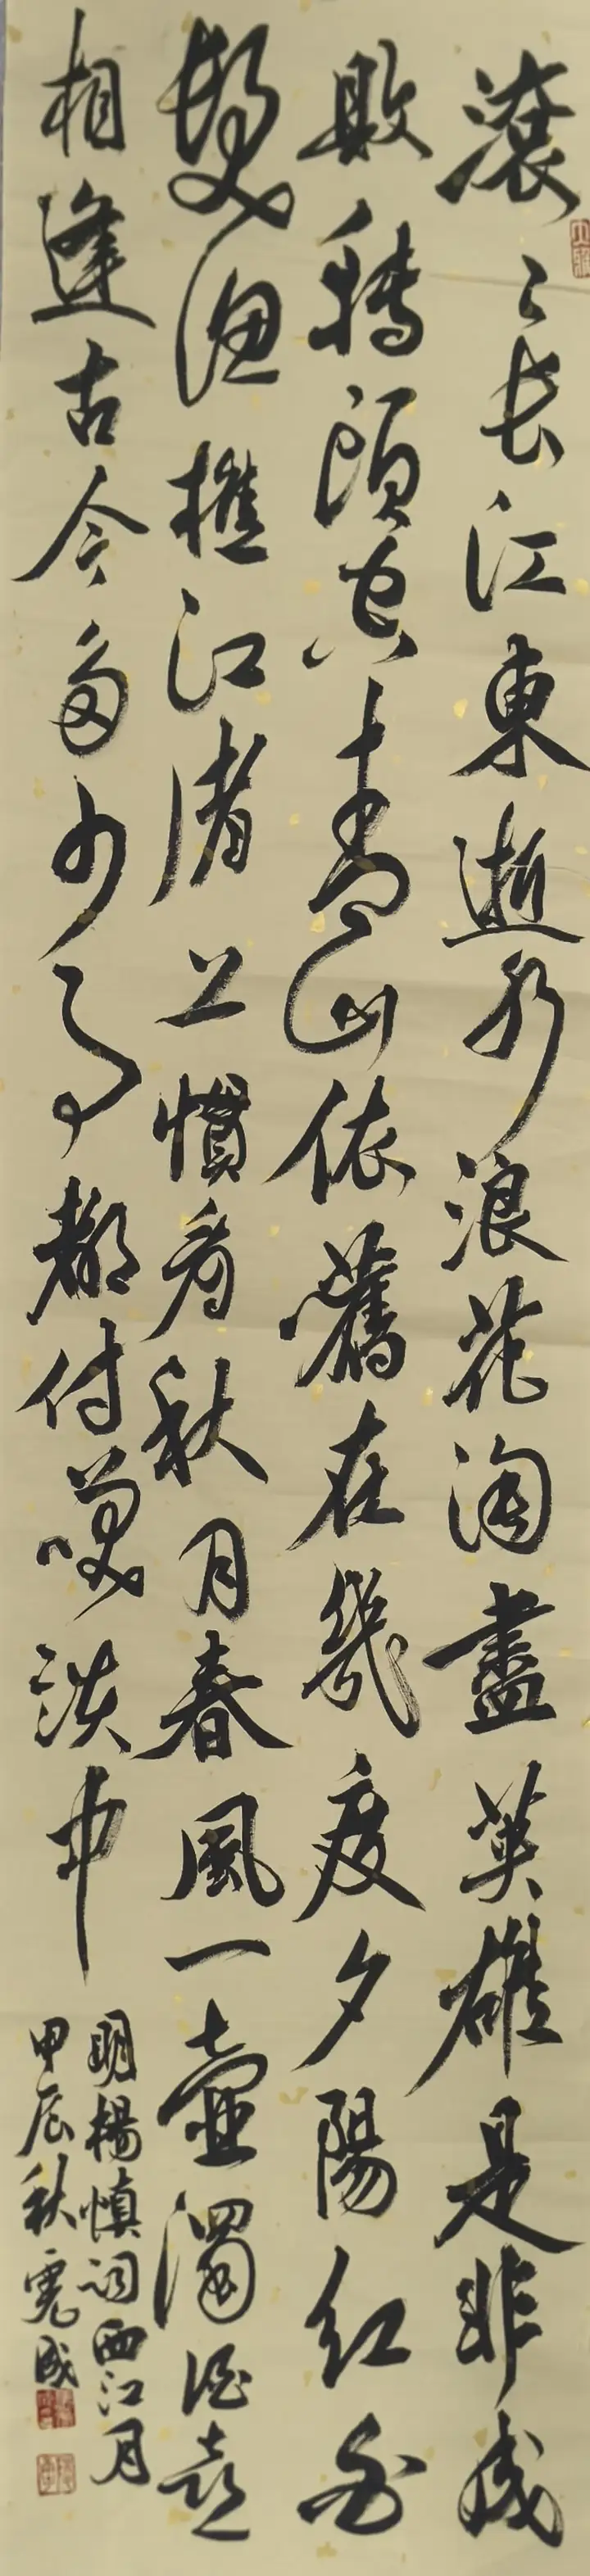 滚々長江東逝水浪花淘盡英雄是非成
敗轉頭空青山依舊在幾度夕陽紅白
髮漁樵江渚上慣看秋月春風一壺濁酒喜
相逢古今多少事都付笑談中
明楊慎詞西江月
甲辰秋